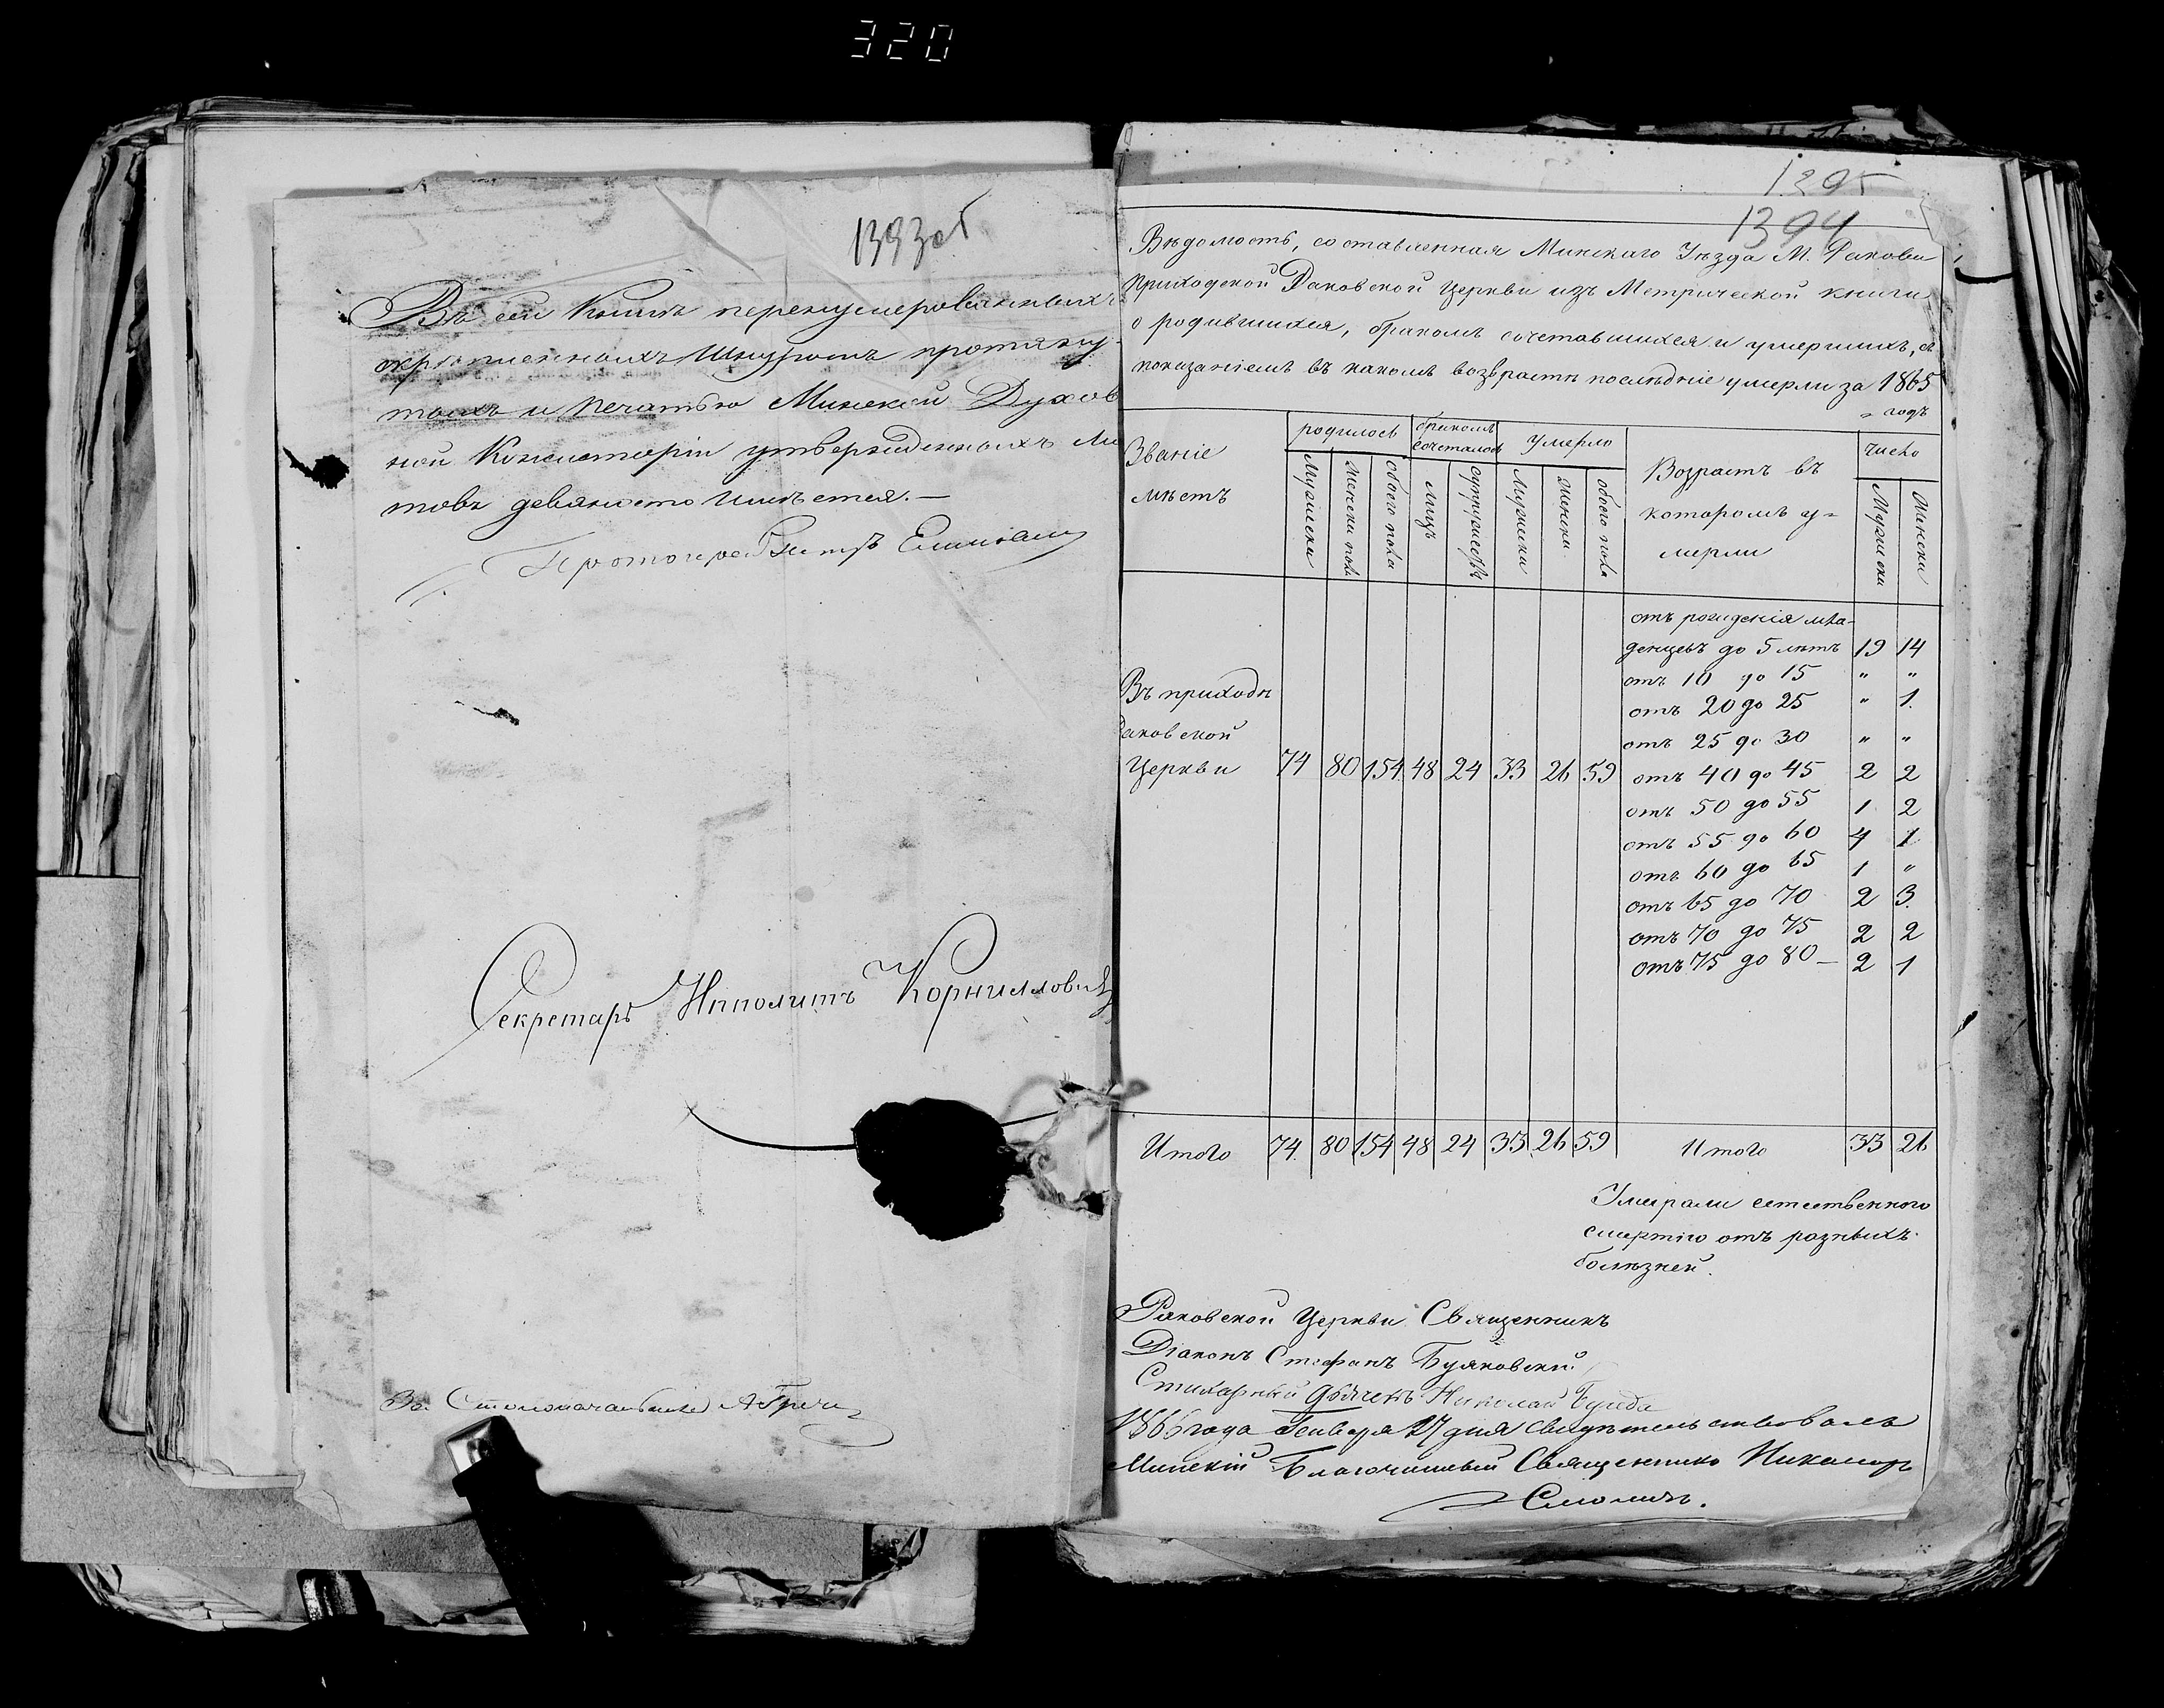 320
1393об
Въ сей Книгѣ перенумерованныхъ
скрѣпленныхъ Шнуромъ протяну-
тыхъ и печатью Минской Духов
ной Консисторіи утвержденныхъ ли
товъ девяносто имѣется.—
Протоіерей
Секретарь Ипполитъ Корниллович
За Столоначальника
1395
1394
Вѣдомость, составленная Минскаго Уѣзда М. Ракова
приходской Раковской Церкви изъ Метрической книги
о родившихся, бракомъ сочетавшихся и умершихъ, съ
показаніемъ въ какомъ возврастѣ послѣдніе умерли за 1865
годъ
Званіе мѣстъ
родилось
бракомъ сочеталось
умерло
Возрастъ въ которомъ у= мерли
число
Мужески
Женски пола
Обоего пола
Лицъ
Супружествъ
Мужески
Женски
обоего пола
Мужески
Женски
отъ рожденія мла-
денцевъ до 5 лѣтъ 19 14
отъ 10 до 15 " "
отъ 20 до 25 " 1.
отъ 25 до 30 " "
отъ 40 до 45 2 2
отъ 50 до 55 1 2
отъ 55 до 60 4 1
отъ 60 до 65 1 "
отъ 65 до 70 2 3.
отъ 70 до 75 2 2
отъ 75 до 80 — 2 1
Въ приходѣ
Раковской
Церкви 74 80 154 48 24 33 26 59
Итого 74 80 154 48 24 33 26 59 Итого 33 26
Умирали естественною
смертію отъ разныхъ
болѣзней.
Раковской Церкви Священникъ
Діаконъ Стефанъ Буяковскій
Стихарный Дьячекъ Николай
1866 года Генваря 27 дня свидѣтельствовалъ
Минскій Благочинный Священникъ Никаноръ
Смоличъ.